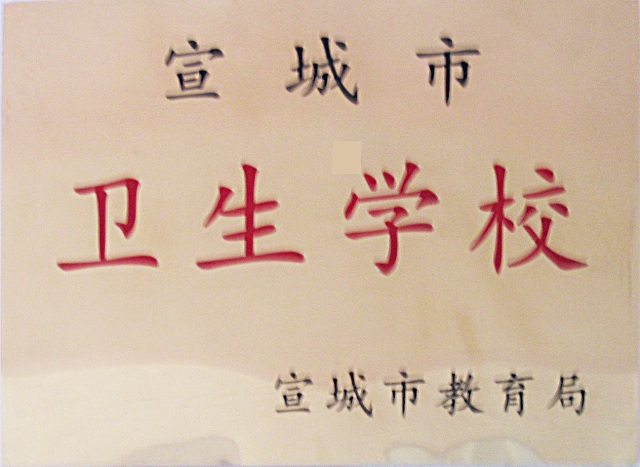 宣城市
卫生学校
宣城市教育局